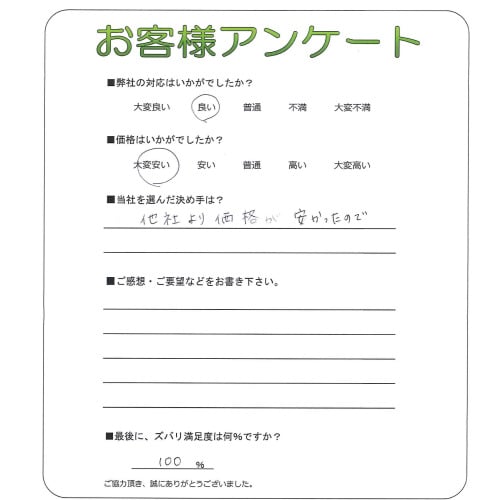 お客様アンケート
■弊社の対応はいかがでしたか？
大変良い 良い 普通 不満 大変不満
■価格はいかがでしたか？
大変安い 安い 普通 高い 大変高い
■当社を選んだ決め手は？
他社より価格が安かったので
■ご感想・ご要望などをお書き下さい。
■最後に、ズバリ満足度は何%ですか？
100 %
ご協力頂き、誠にありがとうございました。